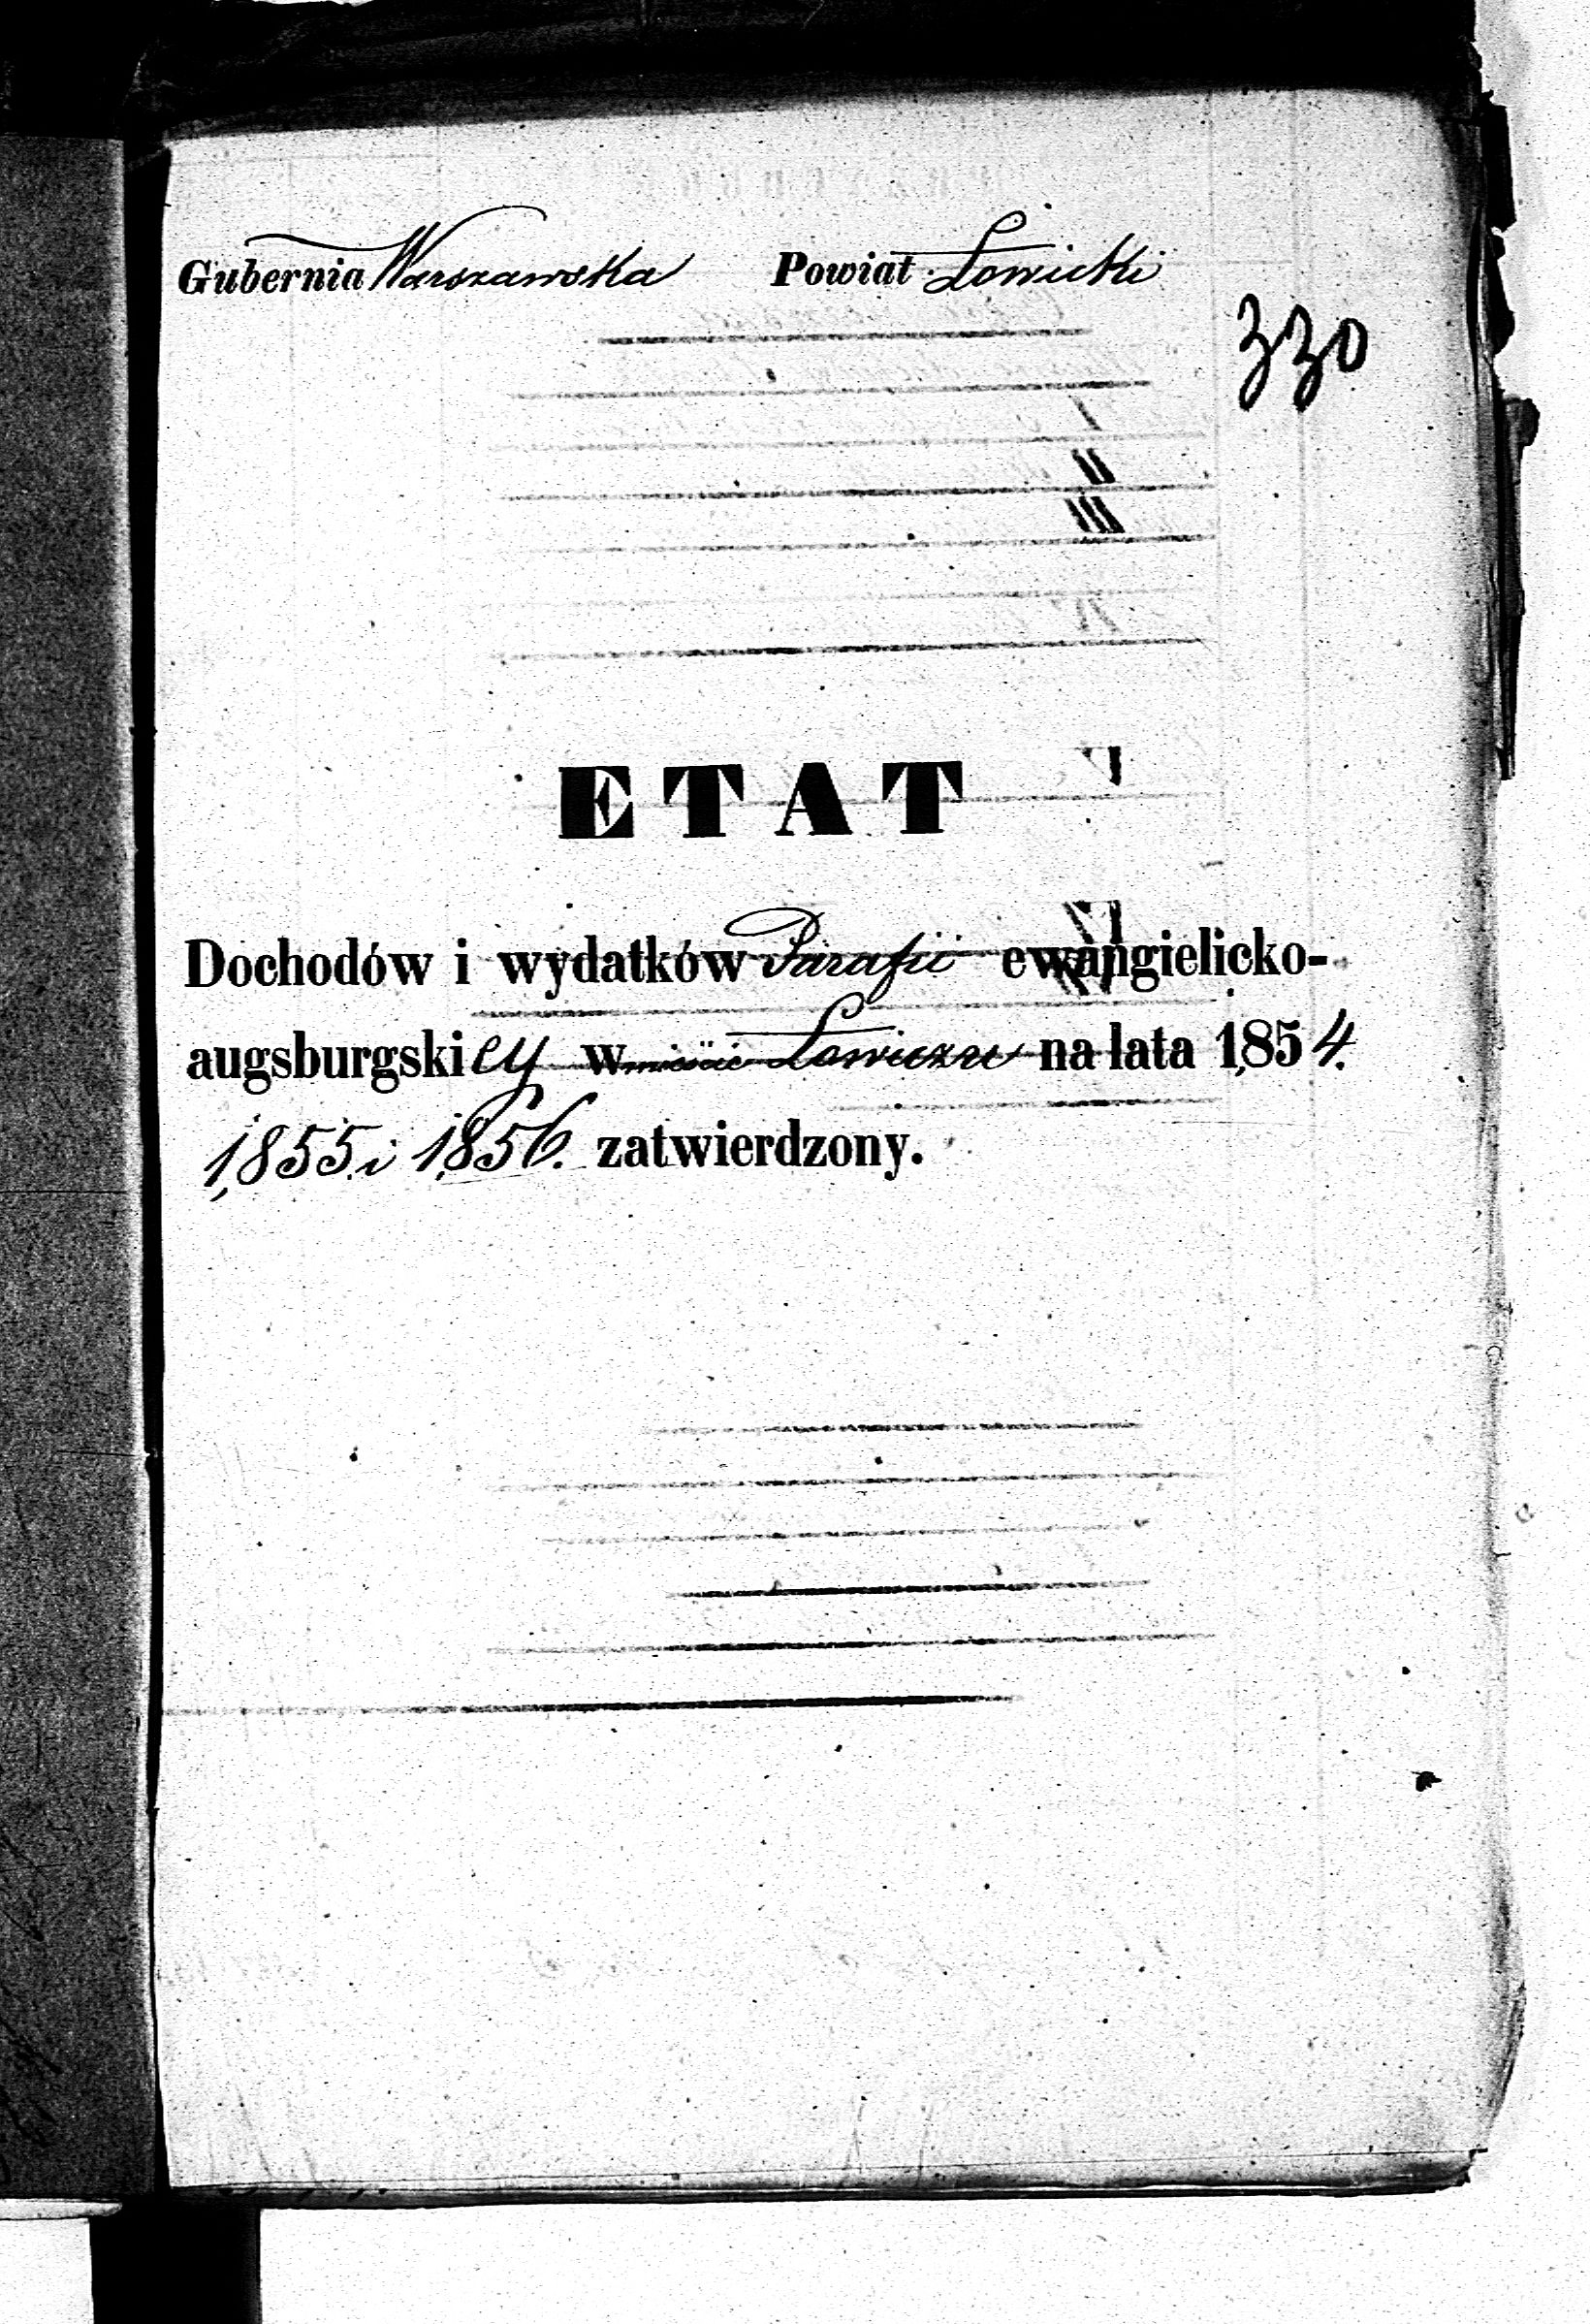 Gubernia Warszawska Powiat Łowicki
330
ETAT
Dochodów i wydatków Parafii ewangielicko-
augsburgskiey w mieście Łowiczu na lata 1,854.
1,855. i 1,856. zatwierdzony.